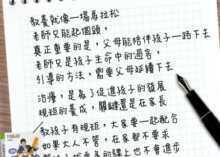 教養就像一場馬拉松
老師只能起個頭，
真正重要的是，父母能陪伴孩子一路下去
老師只是孩子生命中的過客，
引導的方法，需要父母延續下去
治療，是為了促進孩子的發展
規矩的養成，關鍵還是在家長
教孩子有規矩，大家要一起配合
如果大人不管，在家都不要求